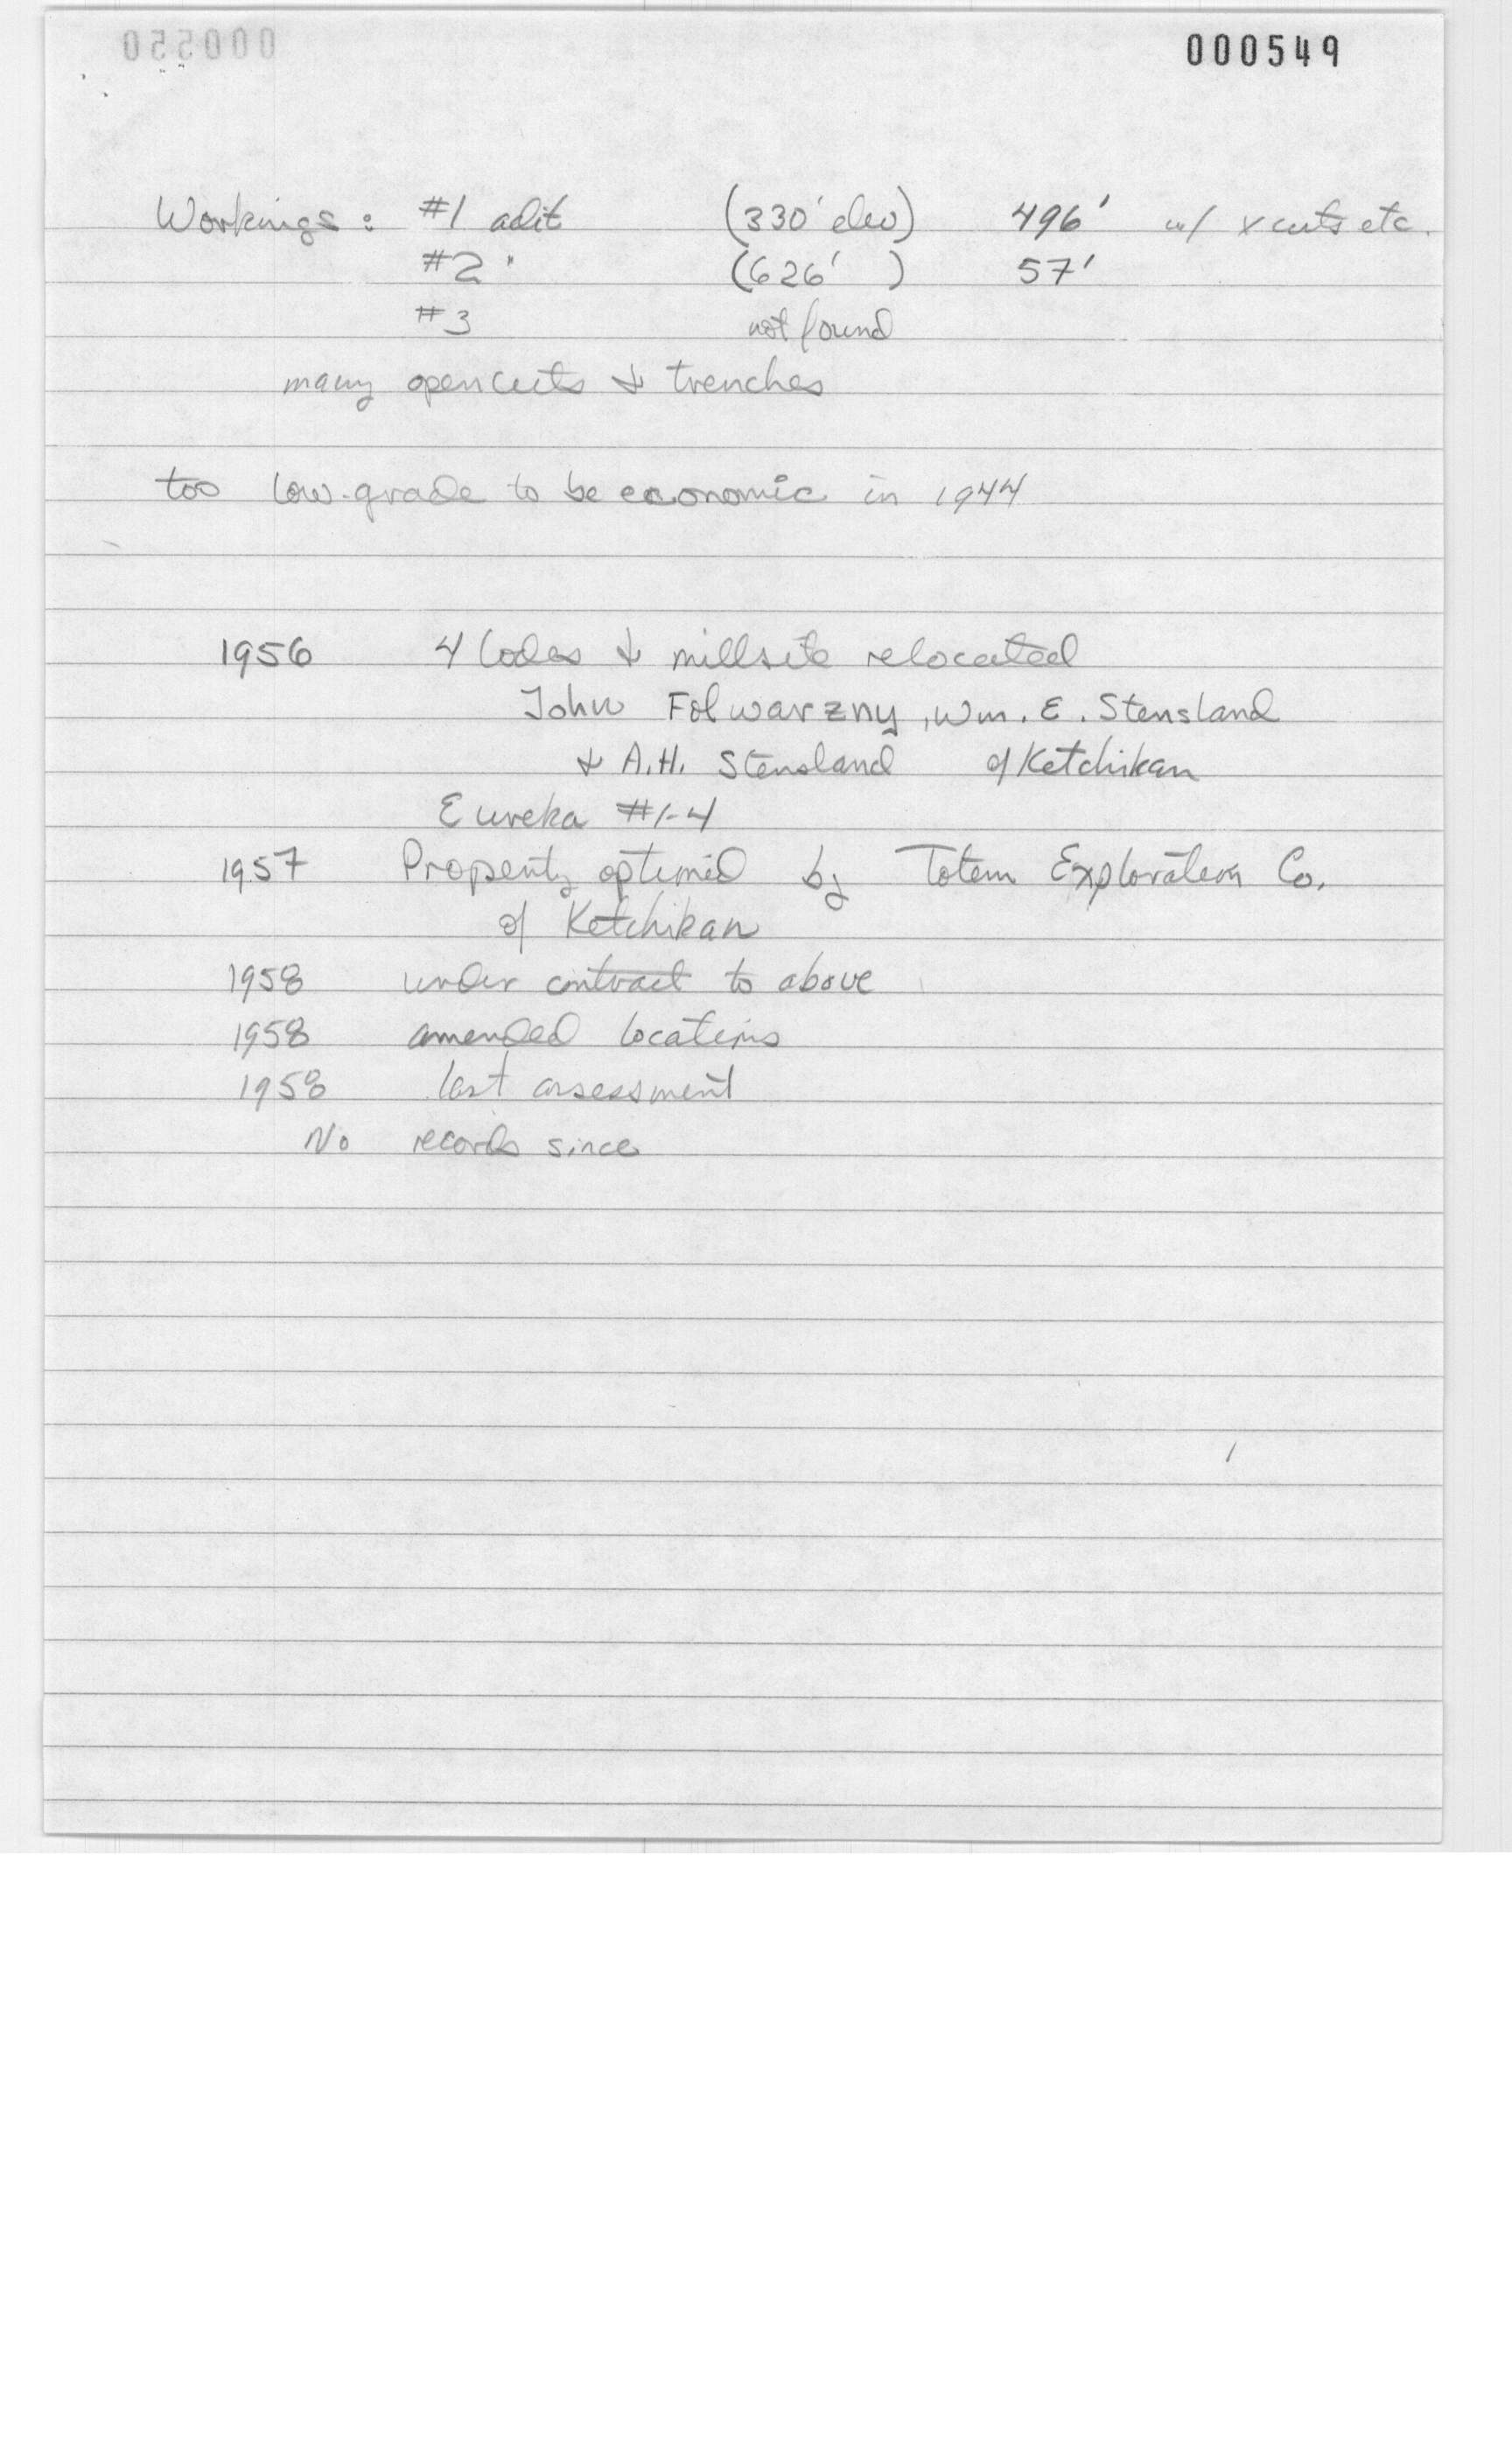 000549
Workings: #1 adit (330' elev) 496' w/ xcuts etc.
#2 " (626' ) 57'
#3 not found
many opencuts & trenches
too low-grade to be economic in 1944
1956 4 lodes & millsite relocated
John Folwarzny, Wm. E. Stensland
& A.H. Stensland of Ketchikan
Eureka #1-4
1957 Property optioned by Totem Exploration Co.
of Ketchikan
1958 under contract to above
1958 amended locations
1958 last assessment
No records since